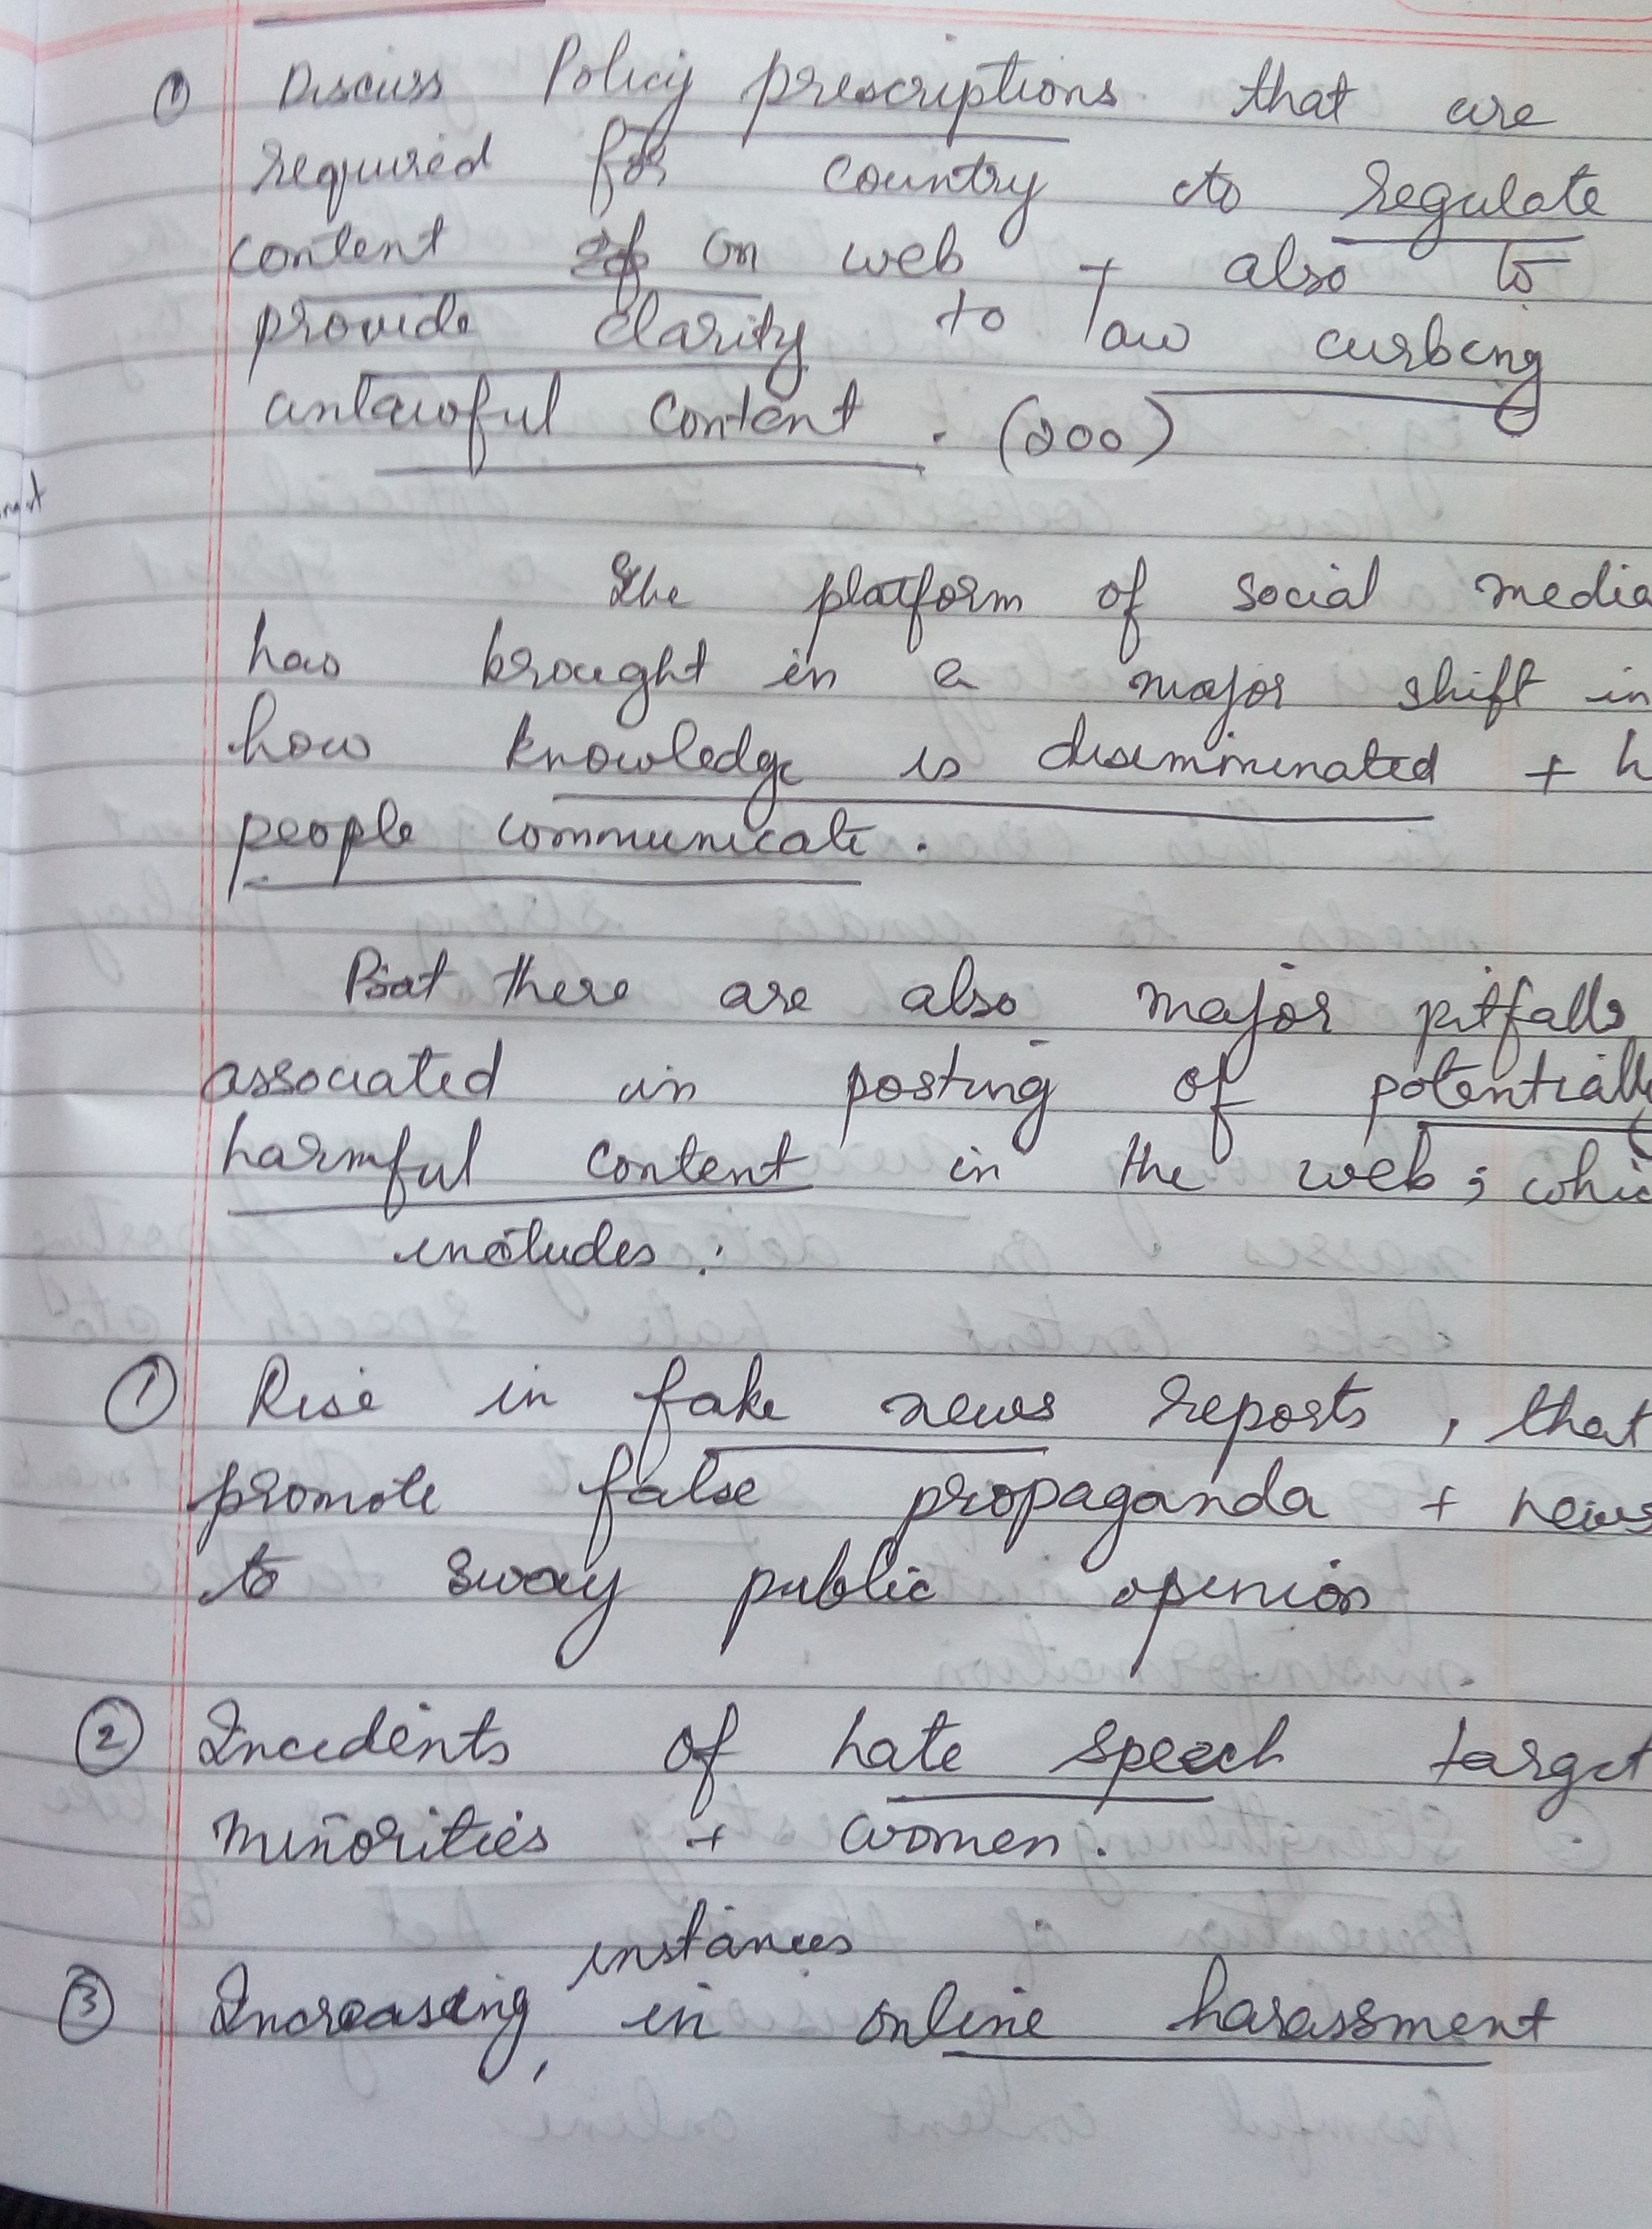 ① Discuss Policy prescriptions that are
required for country to regulate
content on web + also to
provide clarity to law curbing
unlawful content. (200)
The platform of social media
has brought in a major shift in
how knowledge is disemminated + h
people communicate.
But there are also major pitfalls
associated in posting of potentially
harmful content in the web; whic
includes:
① Rise in fake news reports, that
promote false propaganda + news
to sway public opinion
② Incidents of hate speech target
minorities + women.
instances
③ Increasing, in online harassment